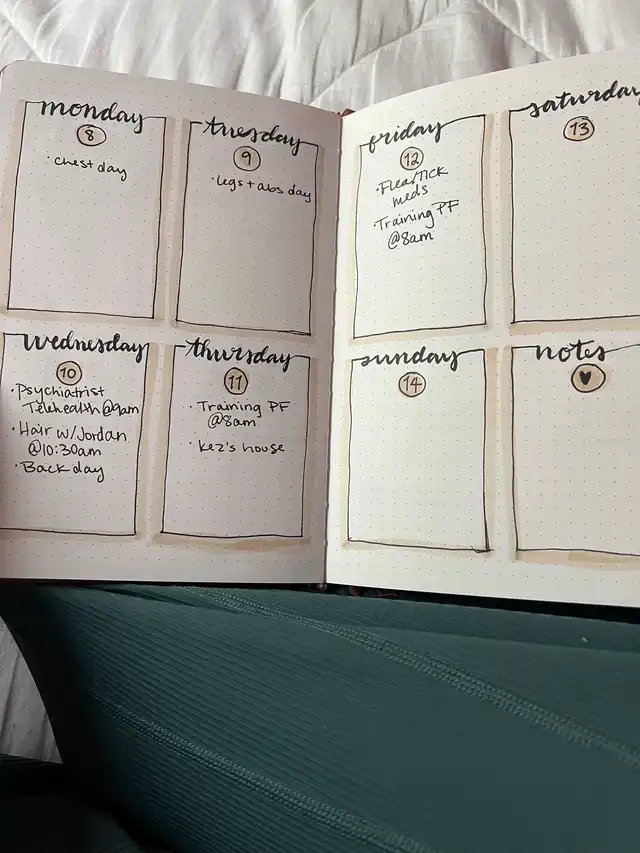 monday
8
· chest day
tuesday
9
· legs + abs day
wednesday
10
· Psychiatrist
Telehealth @9am
· Hair w/Jordan
@10:30am
· Back day
thursday
11
· Training PF
@8am
· Kez's house
friday
12
· Flea/Tick
meds
· Training PF
@8am
saturday
13
sunday
14
notes